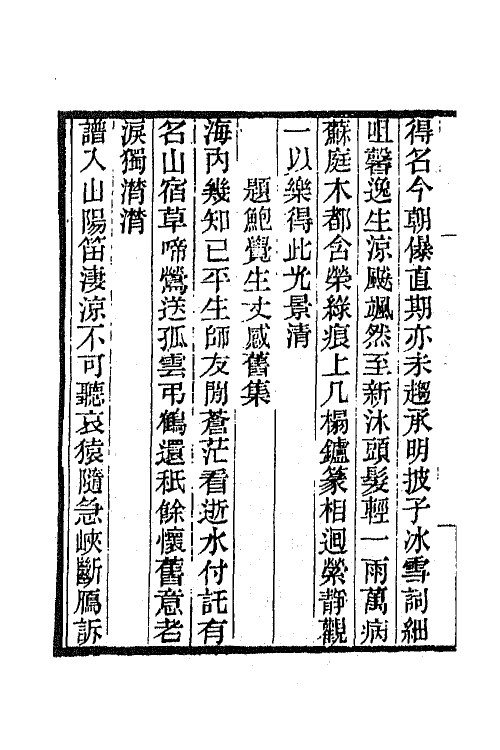 得名今朝傤直期亦未趨承明披子冰雪詞細
咀馨逸生涼颸颯然至新沐頭髮輕一雨萬病
蘇庭木都含榮綠痕上几榻鑪篆相迴縈靜觀
一以樂得此光景清
題鮑覺生丈感舊集
海內幾知已平生師友閒蒼茫看逝水付託有
名山宿草啼鶯送孤雲弔鶴還秖餘懷舊意老
淚獨潸潸
譜入山陽笛淒涼不可聽哀猿隨急峽斷鴈訴